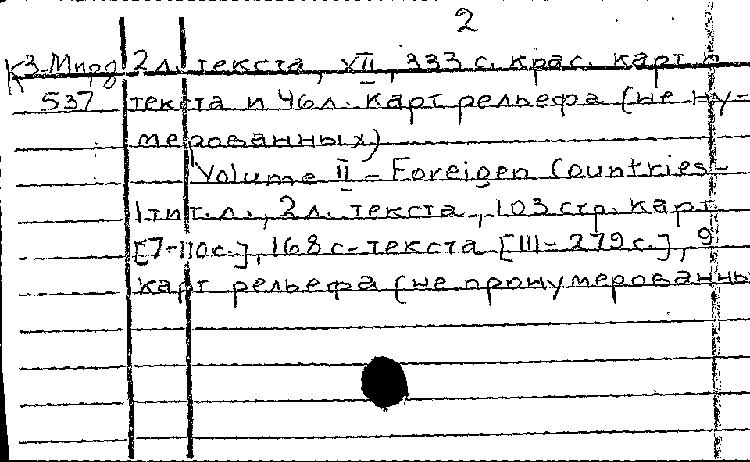 2
К3-Мирд 2л. текста, XII, 333 с. крас. карт и
537 текста и 46л. карт рельефа (не ну-
мерованных)
Volume II - Foreigen Countries-
1тит.л., 2л. текста, 103 стр. карт
[7-110с.], 168 с-текста [III-279с.], 9
карт рельефа (не пронумерованны